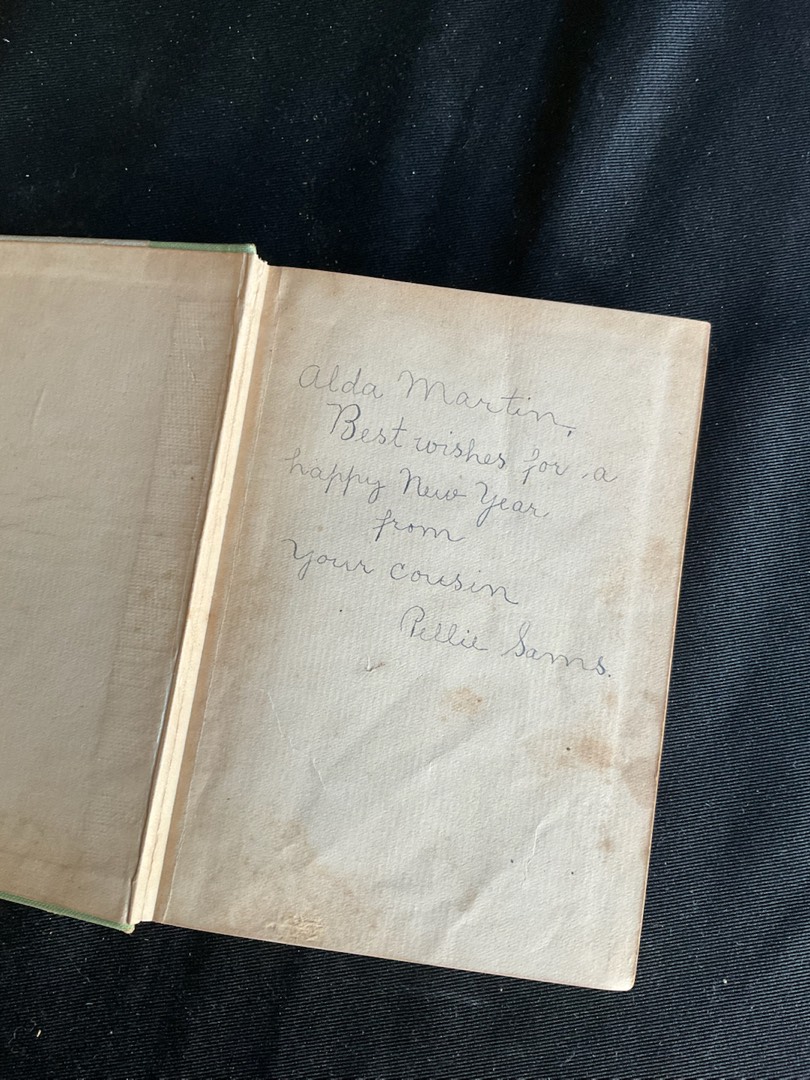 Alda Martin,
Best wishes for a
happy New Year
from
Your cousin
Pellie Sams.